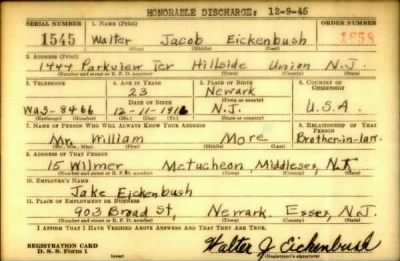 HONORABLE DISCHARGE: 12-9-45
SERIAL NUMBER 1. NAME (Print) ORDER NUMBER
1545 Walter Jacob Eickenbush 1858
(First) (Middle) (Last)
2. ADDRESS (Print)
1444 Parkview Ter Hillside Union N.J.
(Number and street or R. F. D. number) (Town) (County) (State)
3. TELEPHONE 4. AGE IN YEARS 5. PLACE OF BIRTH 6. COUNTRY OF CITIZENSHIP
23 Newark
DATE OF BIRTH (Town or county)
Wa3-8466 12-11-1916 N.J. U.S.A.
(Exchange) (Number) (Mo.) (Day) (Yr.) (State or country)
7. NAME OF PERSON WHO WILL ALWAYS KNOW YOUR ADDRESS 8. RELATIONSHIP OF THAT PERSON
Mr. William More Brother-in-law
(Mr., Mrs., Miss) (First) (Middle) (Last)
9. ADDRESS OF THAT PERSON
15 Wilmer Metucheon, Middlesex, N.J.
(Number and street or R. F. D. number) (Town) (County) (State)
10. EMPLOYER'S NAME
Jake Eickenbush
11. PLACE OF EMPLOYMENT OR BUSINESS
903 Broad St, Newark, Essex, N.J.
(Number and street or R. F. D. number) (Town) (County) (State)
I AFFIRM THAT I HAVE VERIFIED ABOVE ANSWERS AND THAT THEY ARE TRUE.
REGISTRATION CARD
D. S. S. Form 1 Walter J Eickenbush
(Registrant's signature)